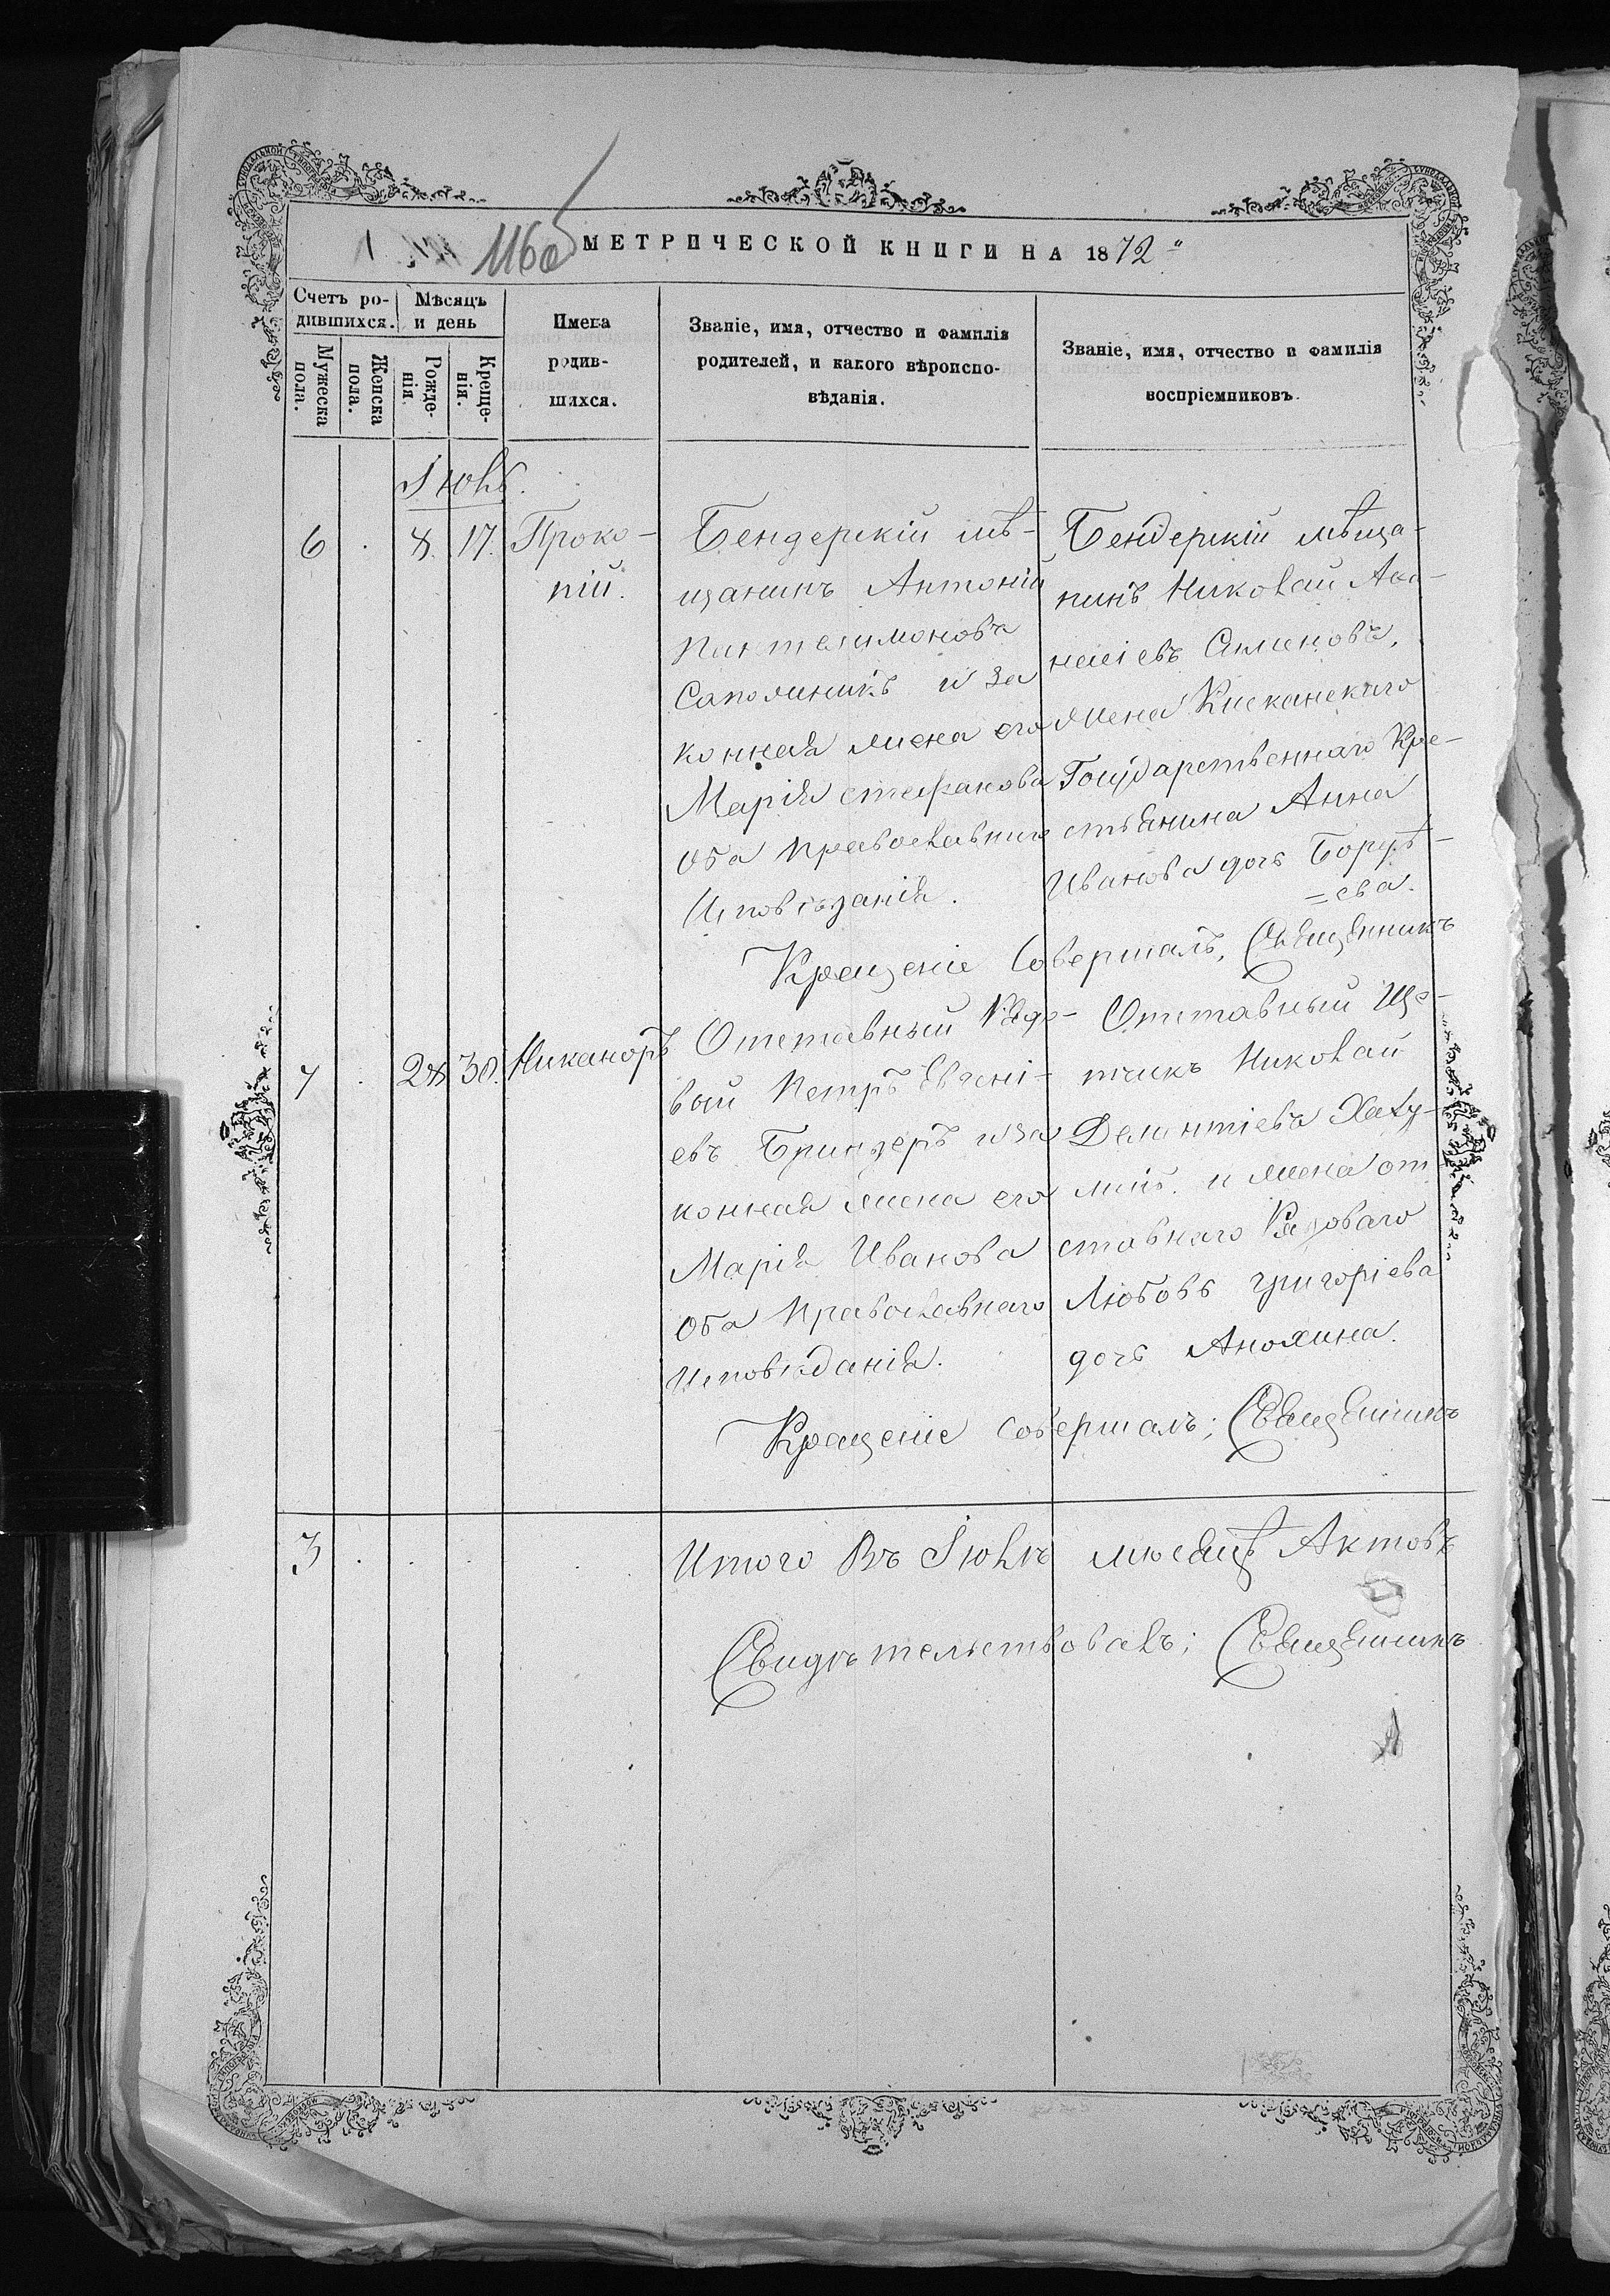 1160б
МЕТРИЧЕСКОЙ КНИГИ НА 1872
Счетъ ро-
дившихся.
Мужеска
пола.
Женска
пола.
Мѣсяцъ
и день
Рожде-
нія.
Креще-
нія.
Имена
родив-
шихся.
Званіе, имя, отчество и фамилія
родителей, и какого вѣроиспо-
вѣданія.
Званіе, имя, отчество и фамилія
воспріемниковъ.
Іюль.
6 8. 17.
Проко-
пій.
Бендерскій мѣ-
щанинъ Антоній
Пантелимоновъ
Сапожникъ и За
конная жена его
Марія стефанова
Оба Православнаго
Исповѣданія.
Бендерскій мѣща-
нинъ Николай Аѳа-
насіевъ Симоновъ,
жена Кисканскаго
Государственнаго Кре-
стьянина Анна
Иванова дочь Боруъ-
=ева.
Крещеніе Совершалъ, Священникъ
7 28 30.
Никаноръ
Отставный Рядо-
вый Петръ Евгені-
евъ Бриндеръ и За
конная жена его
Марія Иванова
Оба Православнаго
Исповѣданія.
Отставный
Николай
и жена от
ставнаго Рядоваго
Любовь григоріева
дочь Анохина.
Крещеніе совершалъ; Священникъ
3 Итого Въ Іюлѣ мѣсяцѣ Актовъ
Свидѣтельствовалъ; Священникъ